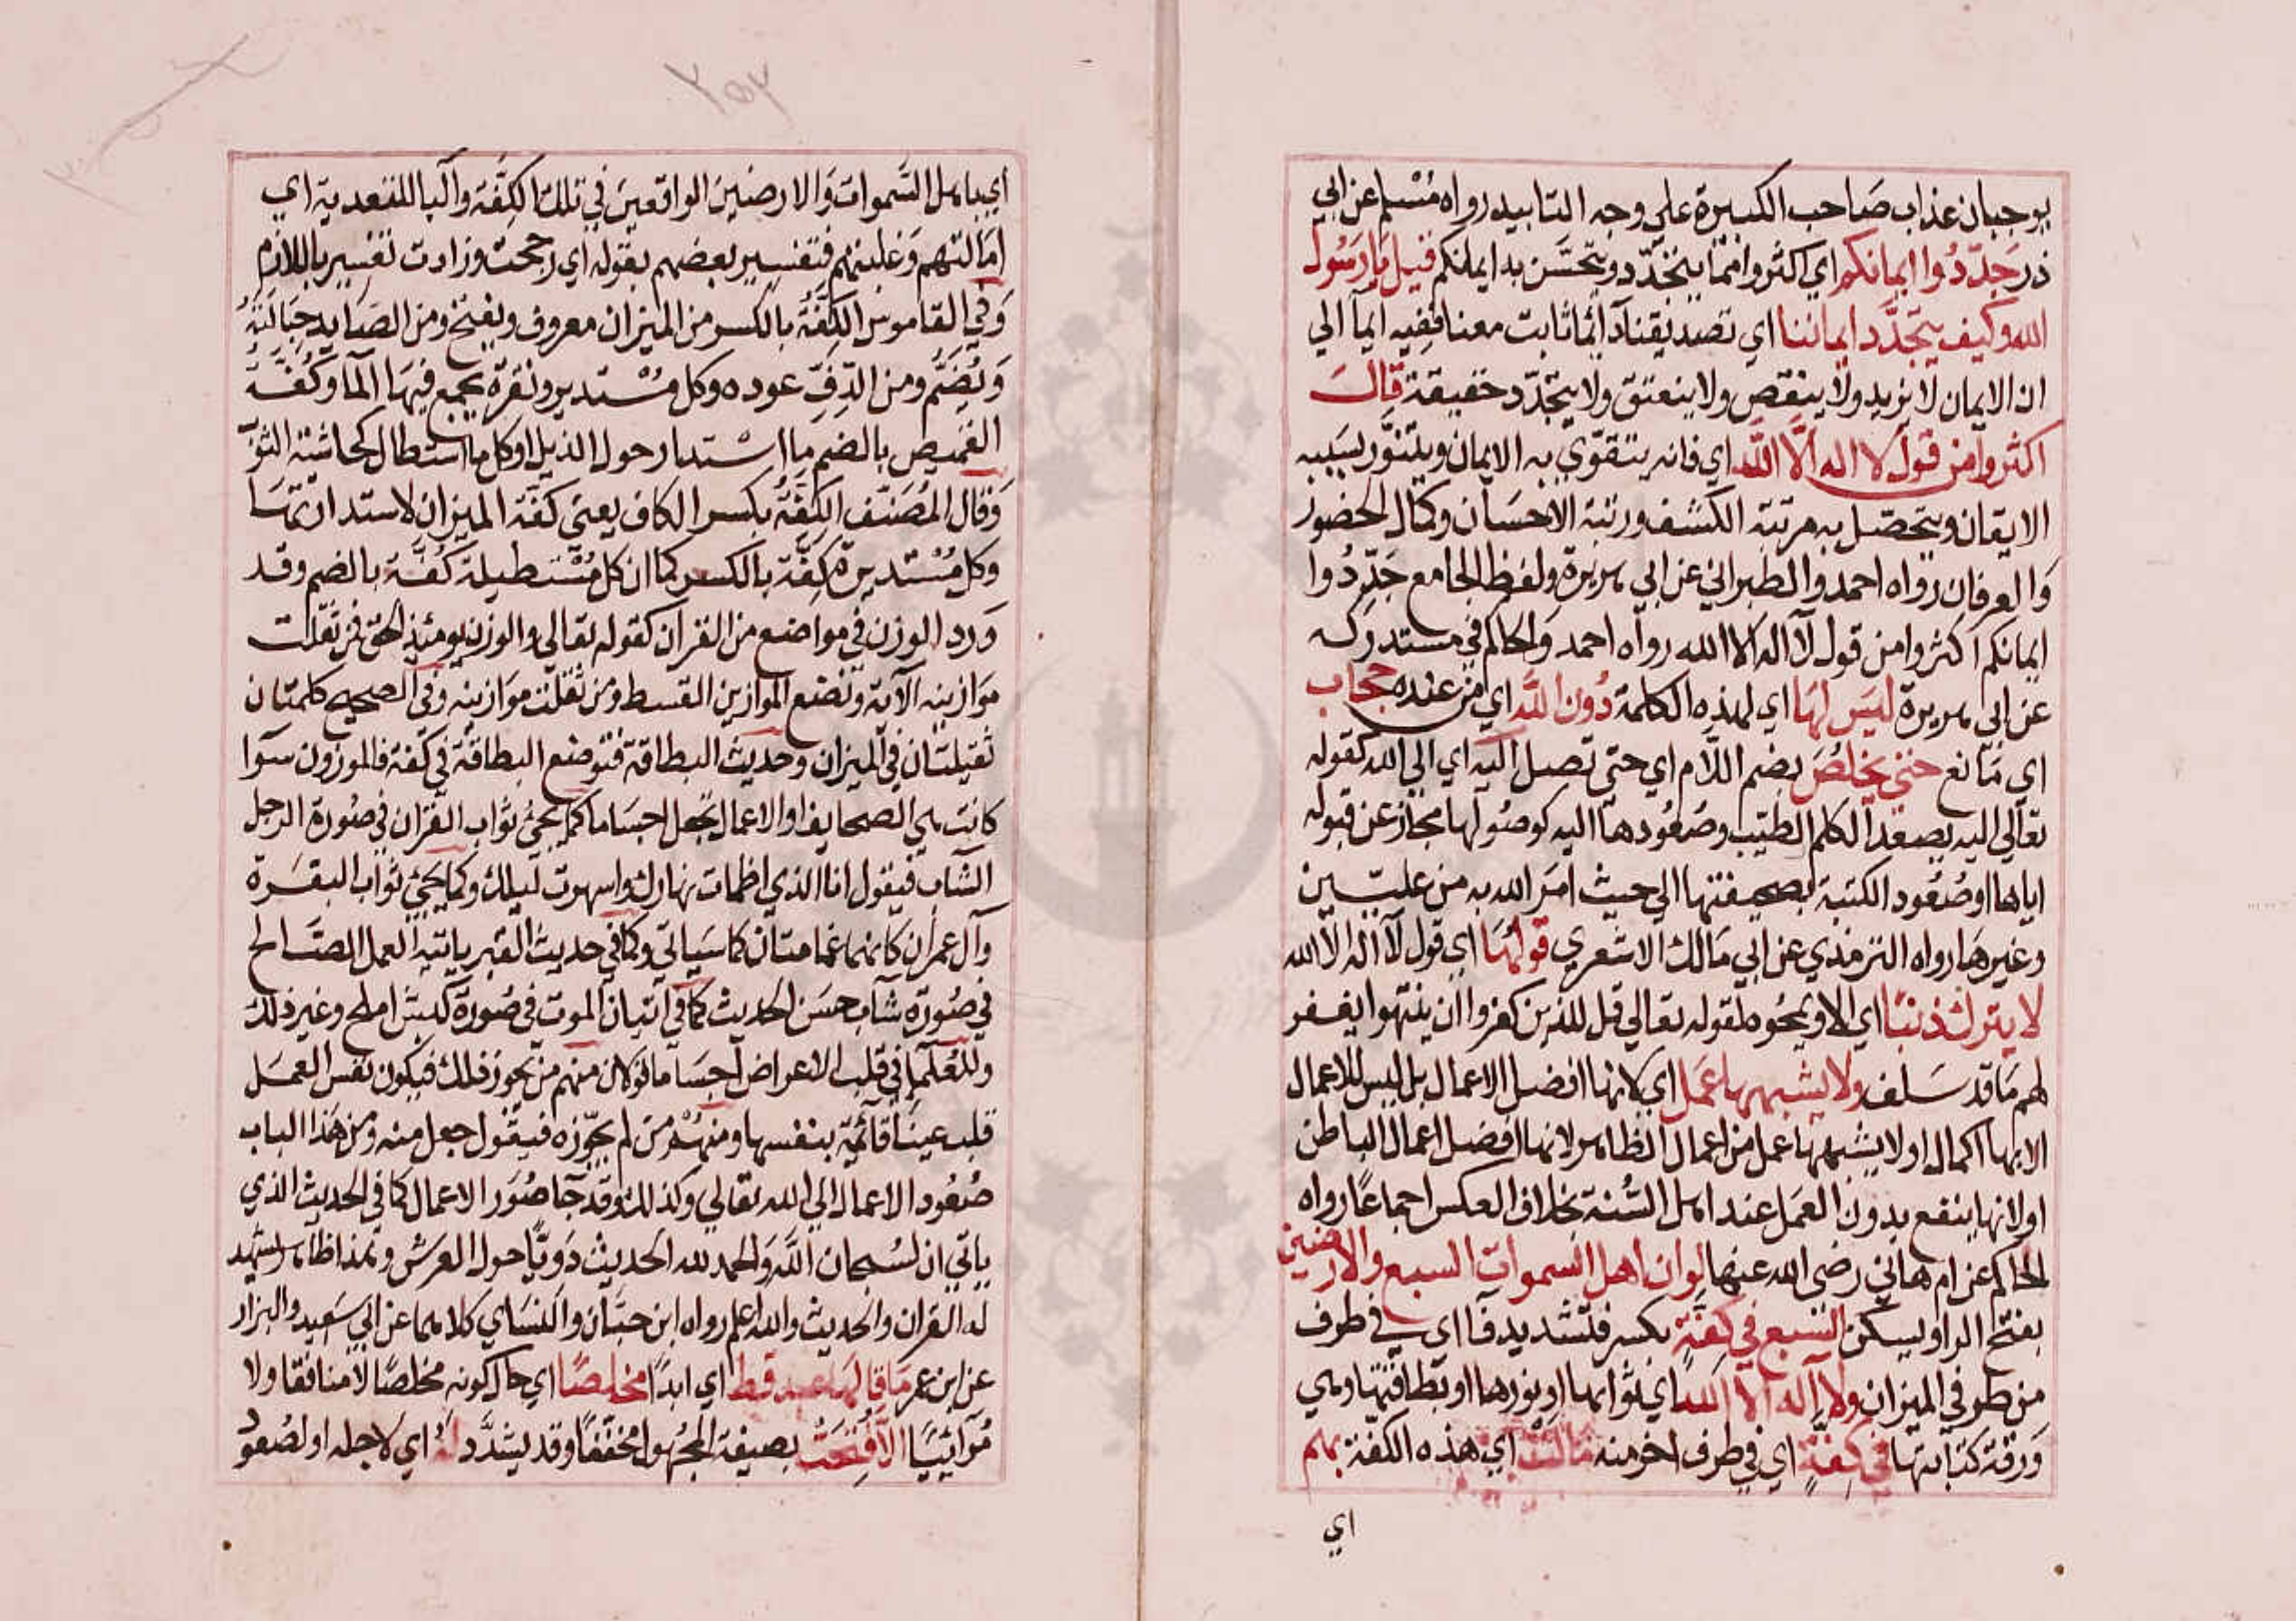 يوجبان عذاب صاحب الكبيرة علي وجه التابيد رواه مُسْلم عن ابي
ذر جَدّدُوا ايمانكم اي اكثروا مما يتجدّد ويتحسّن به ايمانكم قيل يا رَسُول
الله وكيف يتجدَّد ايماننا اي تصديقنا دائما ثابت معنا ففيه ايمآ الي
ان الايمان لا يزيد ولا ينقص ولا يتعتق ولا يتجدّد حقيقة قَالَ
اكثروا من قول لا اله الّا اللّه اي فانه يتقوّي به الايمان ويتنوّر بسَببه
الايقان ويتحصّل به مرتبة الكشف ورتبة الاحسَان وكمال الحضور
وَالعرفان رواه احمد والطبراني عن ابي هريرة ولفظ الجامع جَدِّدُوا
ايمانكم اكثروا من قول لآ اله الا الله رواه احمد وَالحاكم في مستدركه
عن ابي هريرة ليسَ لهَا اي لهذه الكلمة دُون اللّه اي من عنده حجَاب
اي مَانع حتي تخلصَ بضم اللّام اي حتي تصل اليه اي الي الله كقوله
تعالي اليه يصعد الكلم الطيّب وصُعُودها اليه كوصُولها مجاز عن قبوله
اياها او صُعُود الكتبة بصحيفتها الي حيث امَر الله به من علّيّين
وغيرهَا رواه الترمذي عن ابي مَالك الاشعري قولُهَا اي قول لآ اله الّا الله
لا يترك ذنبًا اي الا ويمحُوه لقوله تعالي قل للذين كفروا ان ينتهوا يغفر
لهم مَا قد سَلف ولا يشبهها عَمَل اي لانها افضل الاعمال بل ليس للاعمال
الا بها اكمال او لا يشبهها عمل من اعمال الظاهر لانها افضل اعمال الباطن
او لانها ينفع بدون العَمَل عند اهل السُّنة بخلاف العكس اجماعًا رواه
الحاكم عن ام هاني رضي الله عنها لو ان اهل السموات السبع والارضين
بفتح الراو يسكن السّبع في كِفَّةٍ بكسر فتشديد فآ اي في طرف
من طرفي الميزان ولا اله الا الله اي ثوابها او نورها او بطاقتها وهي
وَرقة كتابتها في كفّةٍ اي في طرف اخر منه مَالتْ اي هذه الكفة بهم
اي
٢٥٢
اي باهل السَّموات وَالارضين الواقعينَ في تلك الكِفَّة وَالبا للتعدية اي
امَالتهم وَغلبتهم فتفسير بعضهم بقوله اي رجحت وزادت تفسير باللازم
وَفي القاموس الكِفّةُ بالكسر من الميزان معروف ويفتح ومن الصَّايد حِبَالتهُ
وَيُضَمُّ ومن الدّفِّ عوده وكل مُسْتدير ونقرة يجمع فيهَا المآ وكُفَّةُ
القميص بالضم مَا اسْتدار حول الذيل او كل ما استطال كحاشية الثوب
وَقال المُصَنّف الكِفَّةُ بكسر الكاف يعني كفة الميزان لاستدارتهَا
وكل مُسْتديرة كِفَّة بالكسر كما ان كل مُسْتطيلة كُفَّة بالضم وقد
وَرد الوزن في مواضع من القرآن كقوله تعالي والوزن يومئذ الحق فمن ثقلت
موَازينه الآية ونضع الموازين القسط ومن ثقلت موَازينه وفي الصحيح كلمتان
ثقيلتان في الميزان وحديث البطاقة فتوضع البطاقة في كفّة فالموزون سوَآ
كانت هي الصحايف او الاعمال تجعل اجسَاما كما يجئ ثواب القرآن في صُورة الرجل
الشاب فيقول انا الذي اظمات نهارك واسهرت ليلك وكما يجئ ثواب البقَرة
وآل عمرٰن كانهما غمامتان كما سَياتي وكما في حديث القبر ياتيه العمل الصَّالح
في صُورة شاب حسَن الحديث كما في اتيان الموت في صُورة كبش املح وغير ذلك
وللعُلمآ في قلب الاعراض اجسَاما لو كان منهم من يجوز ذلك فيكون نفس العمَل
قلب عينًا قائمة بنفسها ومنهُم من لم يجوّزه فيقول جعل منه ومن هَذا الباب
صُعُود الاعمال الي الله تعالي وكذلك وقد جآ صُوَر الاعمال كما في الحديث الذي
ياتي ان لسُبحان اللّه وَالحمد لله الحديث دَويًّا حول العرش وهذا ظاهر يشهد
له القران والحديث والله اعلم رواه ابن حبَّان والنسَاي كلاهما عن ابي سَعيد والبزار
عن ابن عمر مَا قالهَا عبد قط اي ابدًا مخلصًا اي حال كونه مخلصًا لا منافقا ولا
مُرآئيًا الّا فُتحَتْ بصيغة المجهُول مخفّفًا وقد يشدَّد لهُ اي لاجله او لصُعود